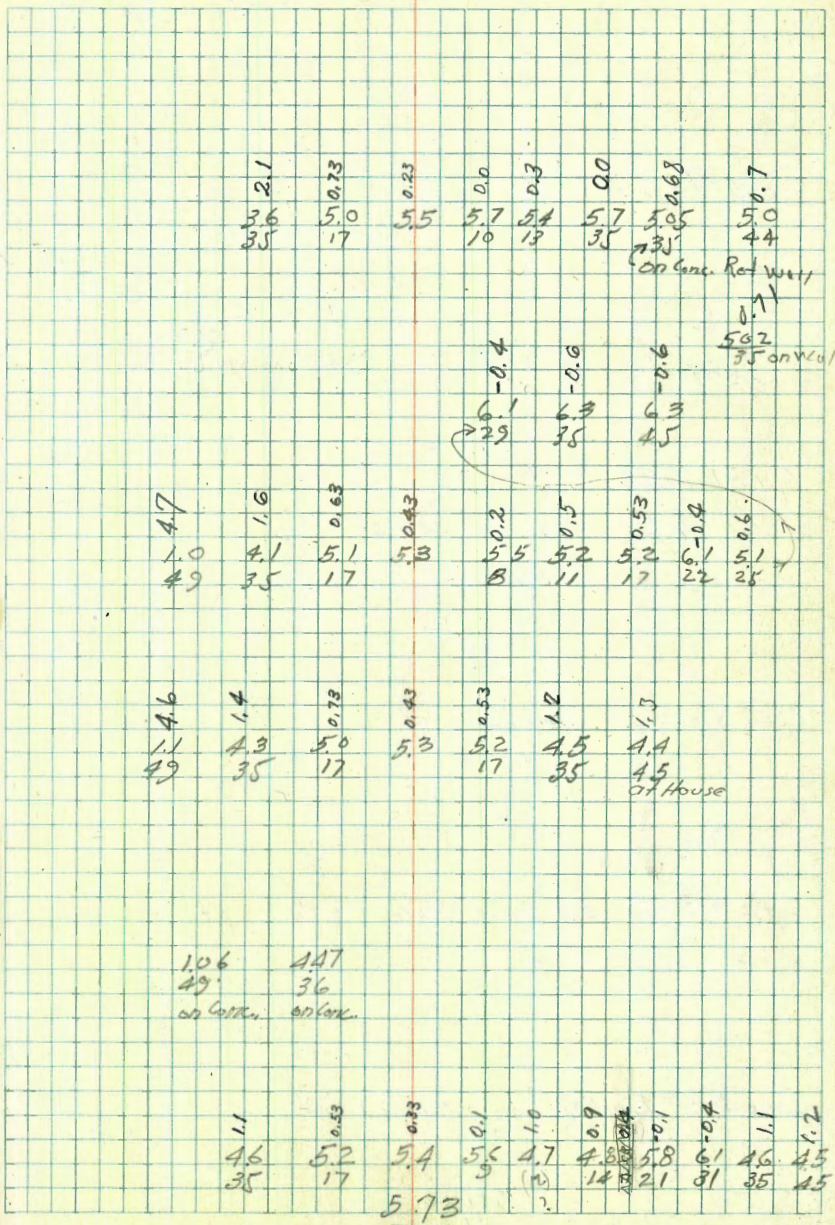 2.1 0.73 0.23 0.0 0.3 0.0 0.68 0.7
3.6 5.0 5.5 5.7 5.4 5.7 5.05 5.0
35 17 10 13 35 35 44
on Conc. Ret Wall
0.71
-0.4 -0.6 -0.6 5.02
6.1 6.3 6.3 35 on Wal
29 35 45
4.7 1.6 0.63 0.43 0.2 0.5 0.53 -0.4 0.6
1.0 4.1 5.1 5.3 5.5 5.2 5.2 6.1 5.1
49 35 17 8 11 17 22 25
4.6 1.4 0.73 0.43 0.53 1.2 1.3
1.1 4.3 5.0 5.3 5.2 4.5 4.4
49 35 17 17 35 45
at House
1.06 4.47
49 36
on Conc. on Conc.
1.1 0.53 0.33 0.1 1.0 0.9 -0.1 -0.4 1.1 1.2
4.6 5.2 5.4 5.6 4.7 4.8 5.8 6.1 4.6 4.5
35 17 9 14 21 31 35 45
5.73